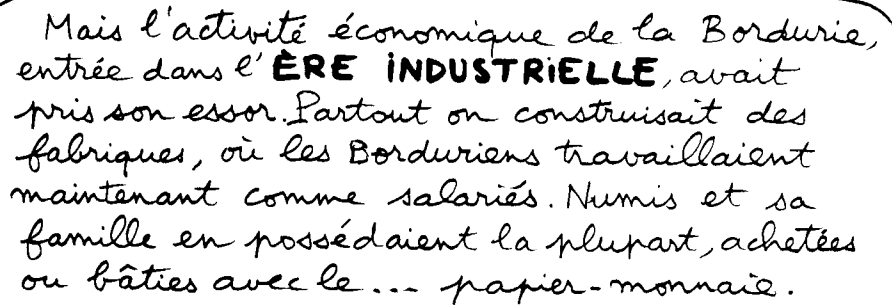 Mais l'activité économique de la Bordurie,
entrée dans l'ÈRE INDUSTRIELLE, avait
pris son essor. Partout on construisait des
fabriques, où les Borduriens travaillaient
maintenant comme salariés. Numis et sa
famille en possédaient la plupart, achetées
ou bâties avec le... papier-monnaie.